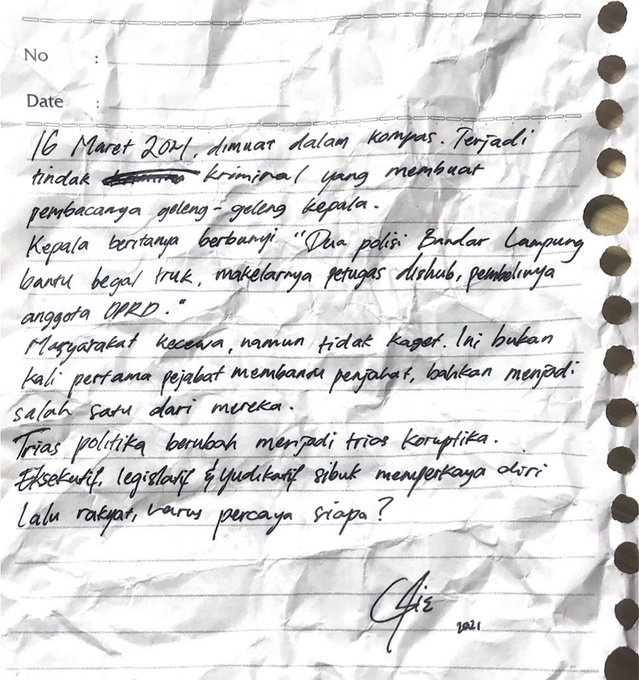 No :
Date :
16 Maret 2021, dimuat dalam kompas. Terjadi
tindak kriminal yang membuat
pembacanya geleng-geleng kepala.
Kepala beritanya berbunyi "Dua polisi Bandar Lampung
bantu begal truk, makelarnya petugas dishub, pembelinya
anggota DPRD."
Masyarakat kecewa, namun tidak kaget. Ini bukan
kali pertama pejabat membantu penjahat, bahkan menjadi
salah satu dari mereka.
Trias politika berubah menjadi trias koruptika.
Eksekutif, legislatif & yudikatif sibuk memperkaya diri
lalu rakyat, harus percaya siapa?
2021